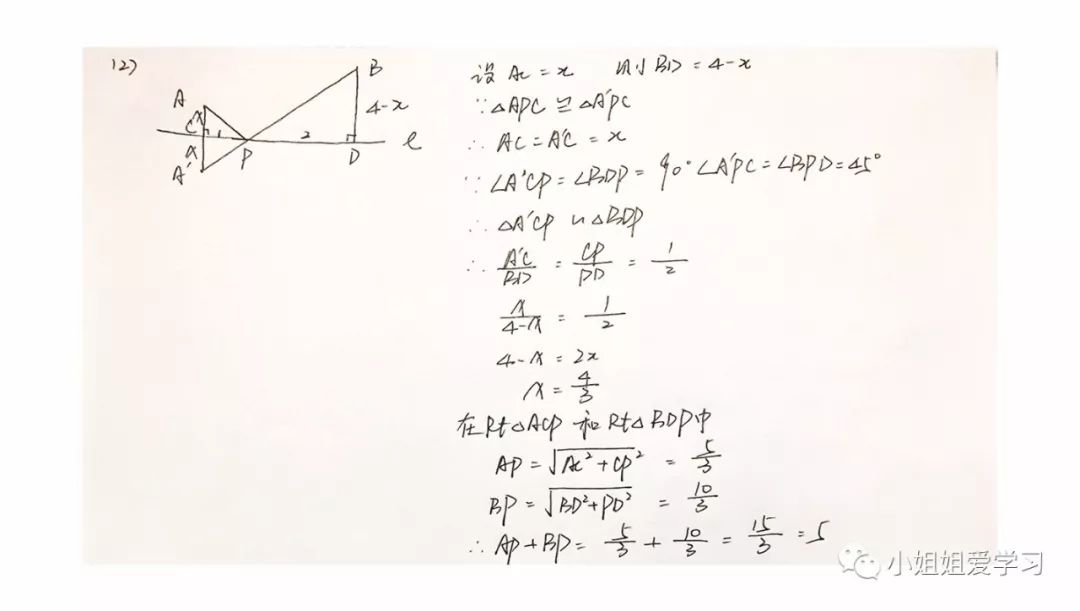 (2)
A
B
C
x
1
2
4-x
x
A'
P
D
l
设 AC = x 则 BD = 4-x
∵ △APC ≌ △A'PC
∴ AC = A'C = x
∵ ∠A'CP = ∠BDP = 90° ∠A'PC = ∠BPD = 45°
∴ △A'CP ∽ △BDP
∴ A'C/BD = CP/PD = 1/2
x/4-x = 1/2
4-x = 2x
x = 4/3
在Rt△ACP 和Rt△BDP中
AP = √AC²+CP² ² = 5/3
BP = √BD²+PD² = 10/3
∴ AP+BP = 5/3 + 10/3 = 15/3 = 5
小姐姐爱学习